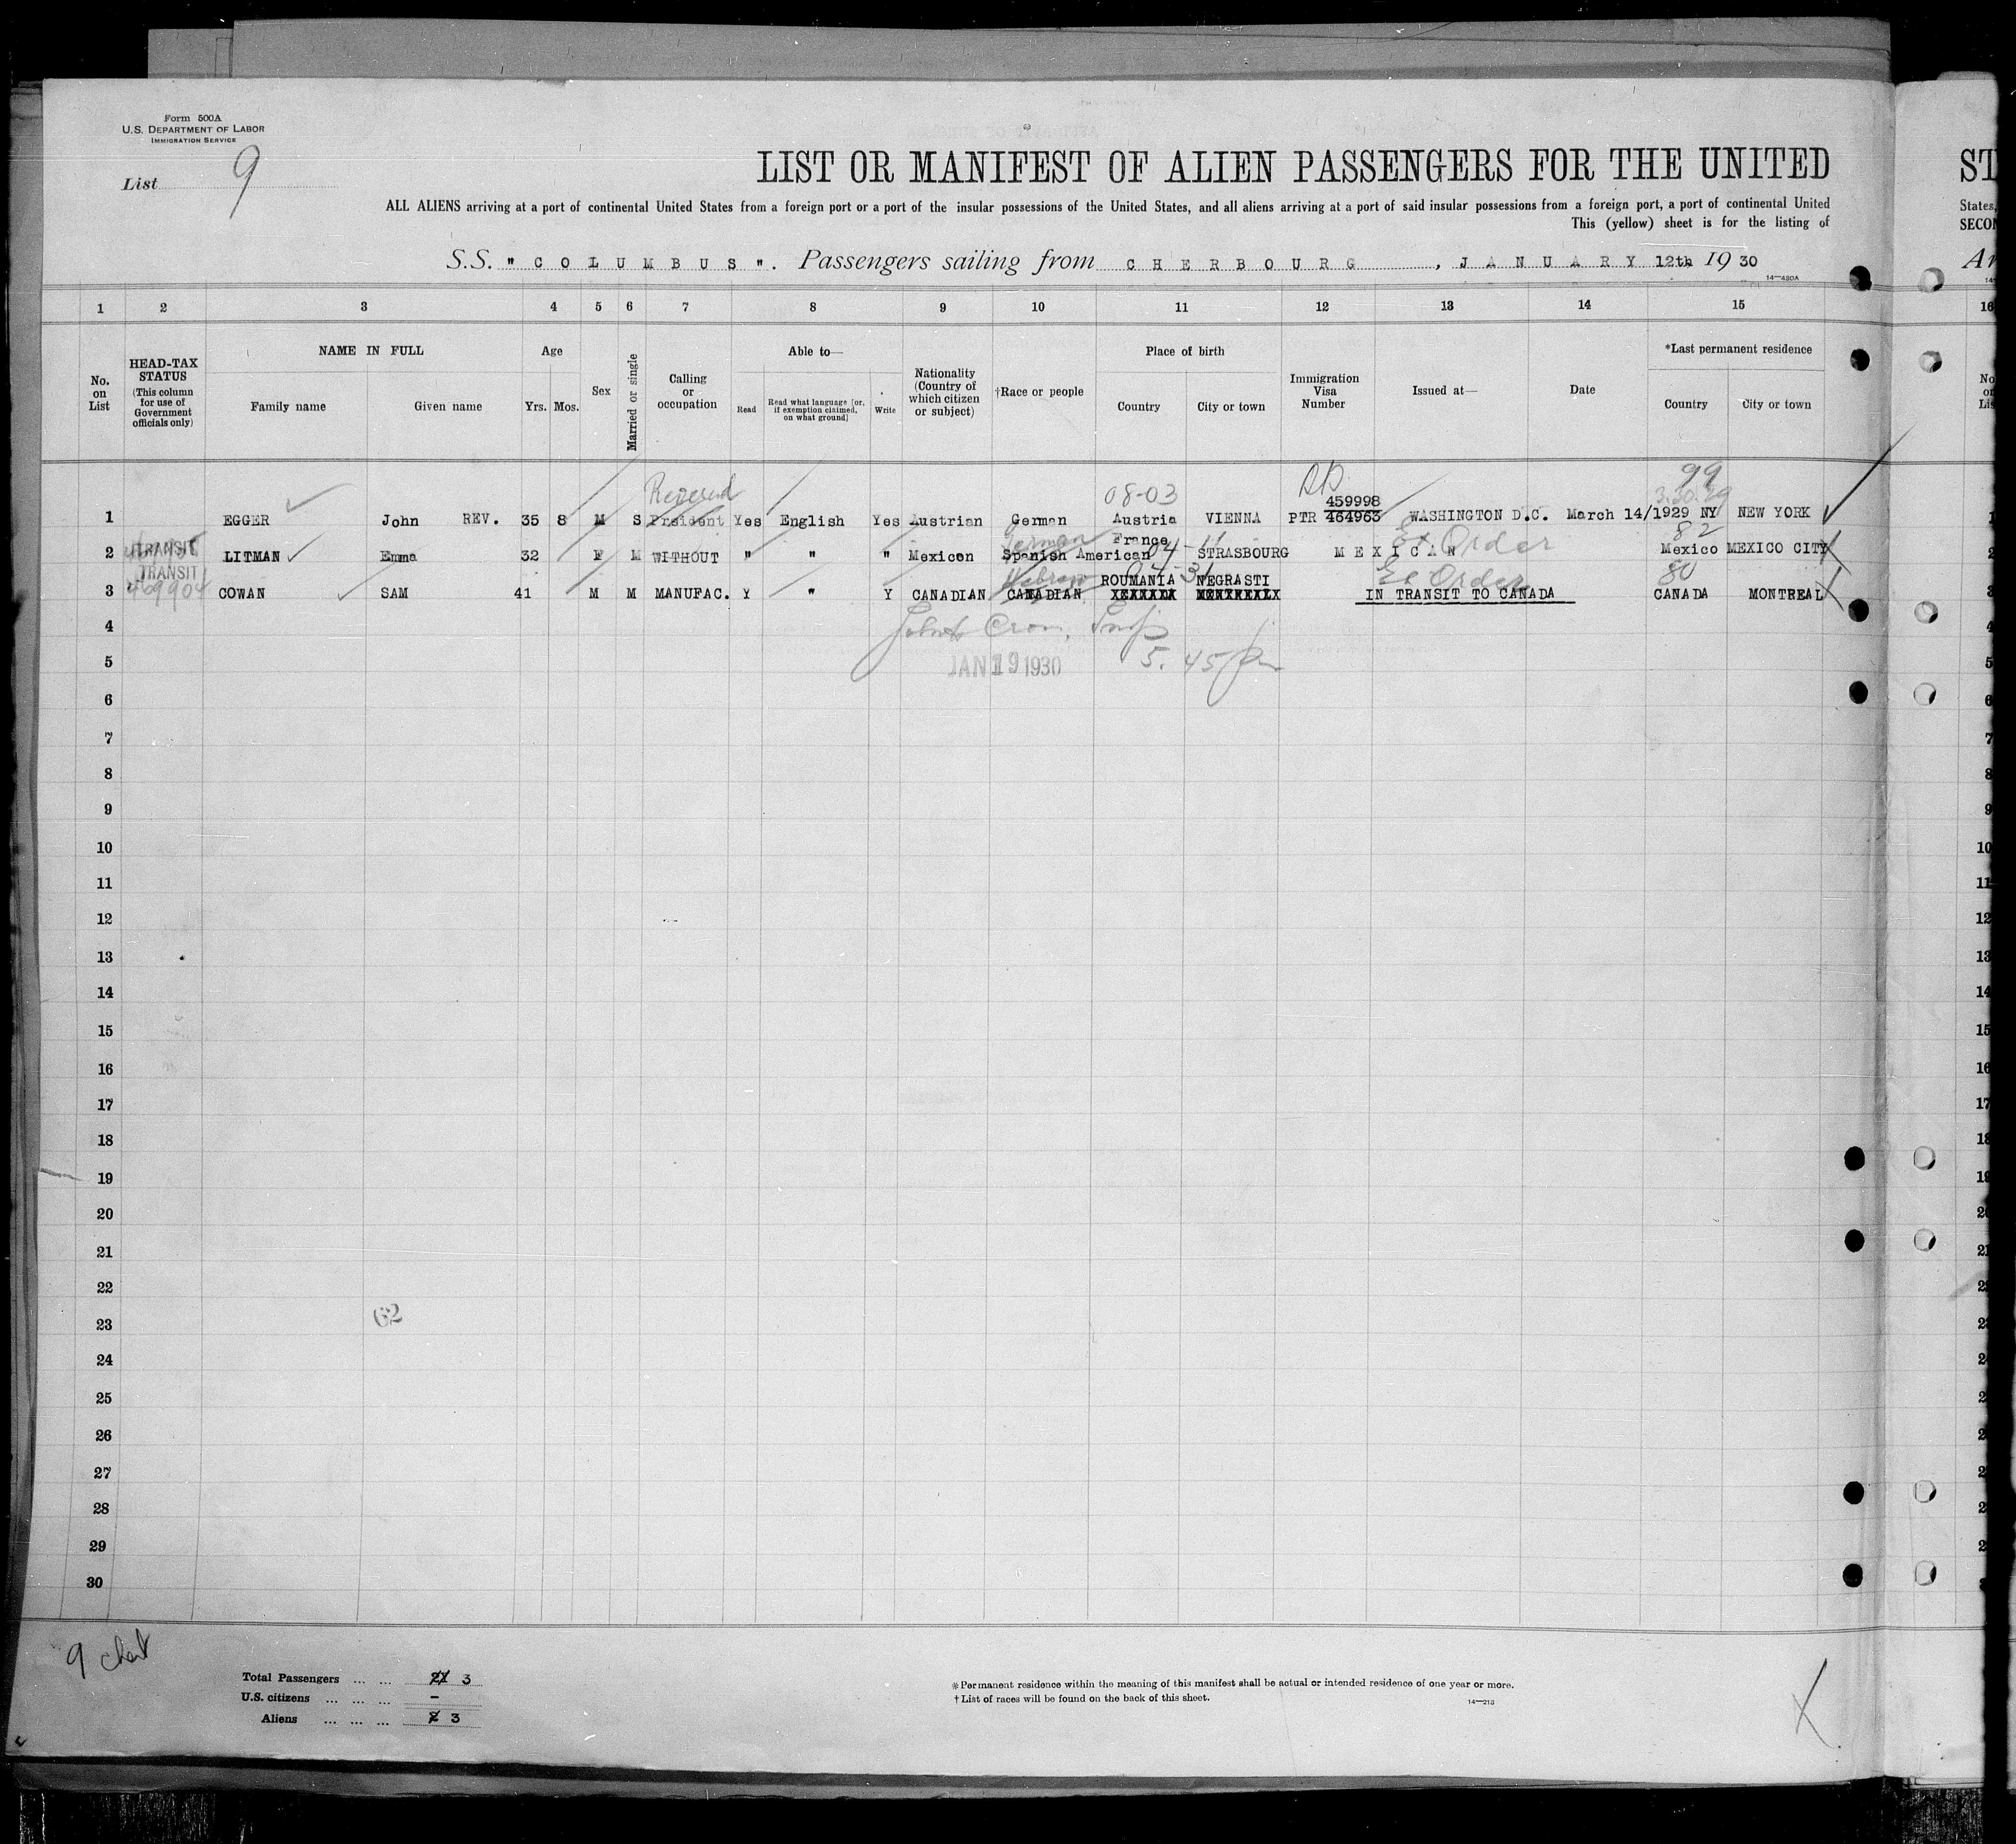 Form 500A
U.S. DEPARTMENT OF LABOR
IMMIGRATION SERVICE
List 9
LIST OR MANIFEST OF ALIEN PASSENGERS FOR THE UNITED
ALL ALIENS arriving at a port of continental United States from a foreign port or a port of the insular possessions of the United States, and all aliens arriving at a port of said insular possessions from a foreign port, a port of continental United
This (yellow) sheet is for the listing of
S.S. "COLUMBUS". Passengers sailing from CHERBOURG, JANUARY 12th 1930
14—480A
1 2 3 4 5 6 7 8 9 10 11 12 13 14 15
No. on List
HEAD-TAX STATUS (This column for use of Government officials only)
NAME IN FULL
Family name Given name
Age
Yrs. Mos.
Sex
Married or single
Calling or occupation
Able to—
Read Read what language [or, if exemption claimed, on what ground] Write
Nationality (Country of which citizen or subject)
†Race or people
Place of birth
Country City or town
Immigration Visa Number
Issued at—
Date
*Last permanent residence
Country City or town
Reverend 08-03 459998 99
3.30.29
1 EGGER John REV. 35 8 M S President Yes English Yes Austrian German Austria VIENNA PTR 464963 WASHINGTON D.C. March 14/1929 NY NEW YORK
TRANSIT German France Ex Order 82
2 LITMAN Emma 32 F M WITHOUT " " " Mexican Spanish American 04-11 STRASBOURG MEXICAN Mexico MEXICO CITY
TRANSIT Hebrew ROUMANIA 04-31 NEGRASTI Ex Order 80
469904
3 COWAN SAM 41 M M MANUFAC. Y " Y CANADIAN CANADIAN IN TRANSIT TO CANADA CANADA MONTREAL
4
5 JAN 19 1930 5.45 pm
6
7
8
9
10
11
12
13
14
15
16
17
18
19
20
21
22
23 62
24
25
26
27
28
29
30
9
Total Passengers ... ... 3
U.S. citizens ... ... ... –
Aliens ... ... ... 2 3
*Permanent residence within the meaning of this manifest shall be actual or intended residence of one year or more.
†List of races will be found on the back of this sheet.
14—213